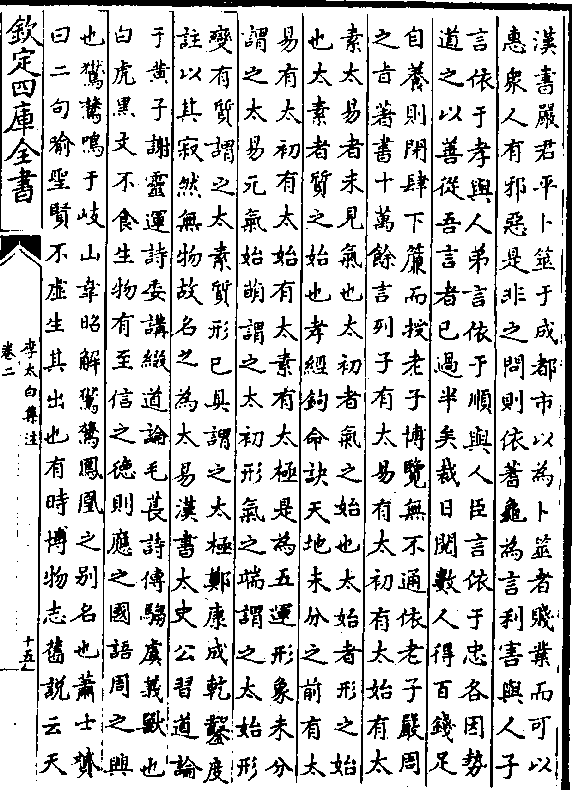 漢書嚴君平卜筮于成都市以為卜筮者賤業而可以
惠衆人有邪惡是非之問則依蓍龜為言利害與人子
言依于孝與人弟言依于順與人臣言依于忠各因勢
道之以善從吾言者已過半矣裁日閱數人得百錢足
自養則閉肆下簾而授老子博覽無不通依老子嚴周
之旨著書十萬餘言列子有太易有太初有太始有太
素太易者未見氣也太初者氣之始也太始者形之始
也太素者質之始也孝經鉤命訣天地未分之前有太
易有太初有太始有太素有太極是為五運形象未分
謂之太易元氣始萌謂之太初形氣之端謂之太始形
變有質謂之太素質形已具謂之太極鄭康成乾鑿度
註以其寂然無物故名之為太易漢書太史公習道論
于黄子謝靈運詩委講綴道論毛萇詩傳騶虞義獸也
白虎黒文不食生物有至信之德則應之國語周之興
也鸑鷟鳴于岐山韋昭解鸑鷟鳳凰之别名也蕭士贇
曰二句喻聖賢不虚生其出也有時博物志舊説云天
欽定四庫全書
李太白集注
卷二
十五